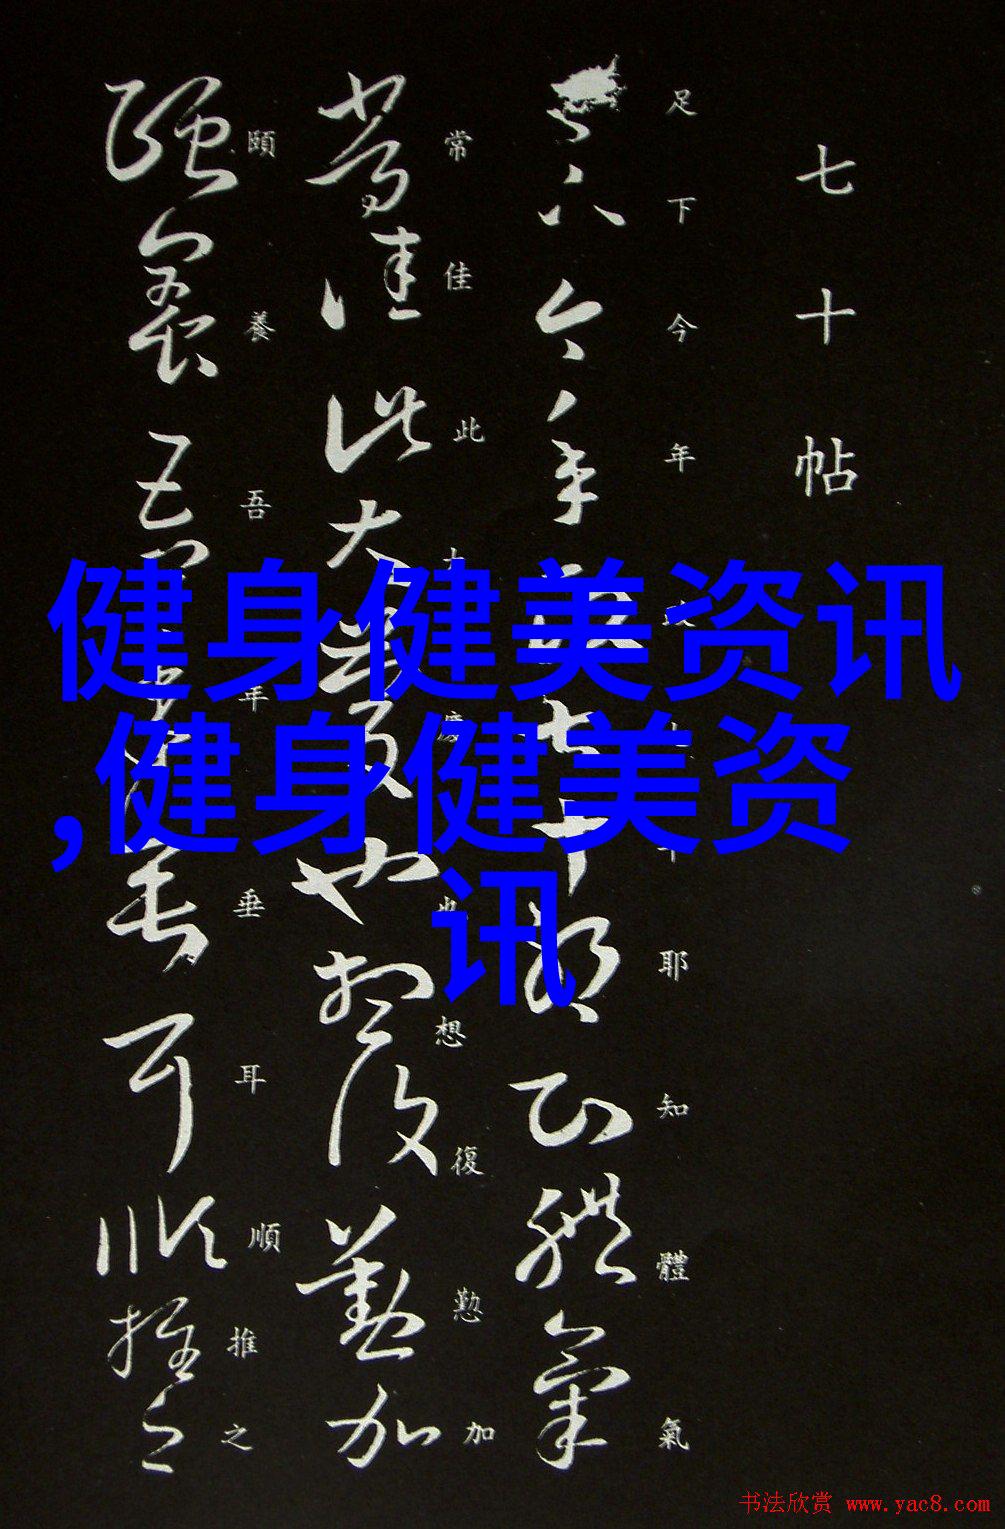 七十帖
足下今年七十耶知體氣
常佳此大慶也想復懃加
頤養吾年垂耳順推之
健身健美资讯
,健身健美资
讯
书法欣赏 www.yac8.com